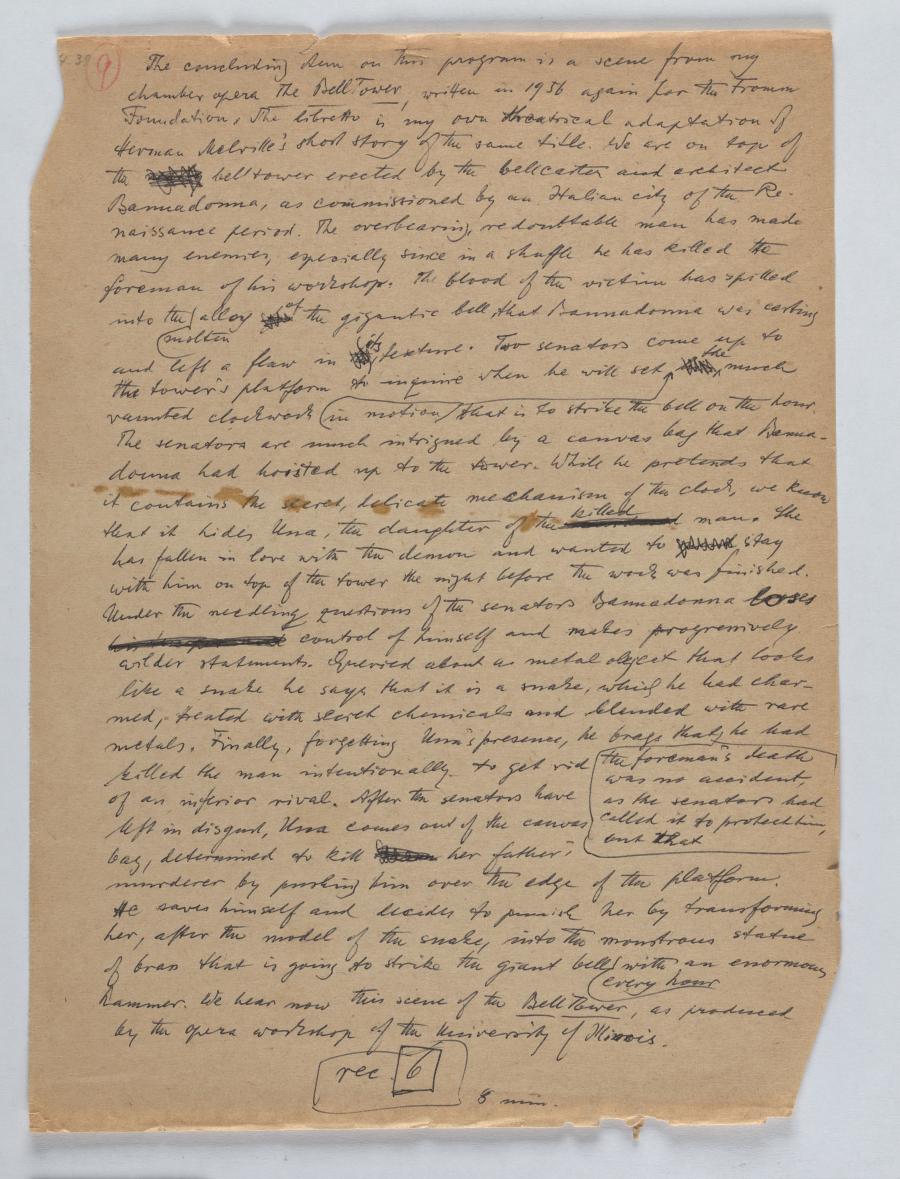 4.39 9
The concluding item on this program is a scene from my
chamber opera The Bell Tower, written in 1956 again for the Fromm
Foundation. The libretto is my own theatrical adaptation of
Herman Melville's short story of the same title. We are on top of
the belltower erected by the bellcaster and architect
Bannadonna, as commissioned by an Italian city of the Re-
naissance period. The overbearing, redoubtable man has made
many enemies, especially since in a shuffle he has killed the
foreman of his workshop. The blood of the victim has spilled
into the alloy of the gigantic bell that Bannadonna was casting
molten
and left a flaw in its texture. Two senators come up to
the tower's platform to inquire when he will set the much
vaunted clockwork in motion that is to strike the bell on the hour.
The senators are much intrigued by a canvas bag that Banna-
donna had hoisted up to the tower. While he pretends that
it contains the secret, delicate mechanism of the clock, we know
that it hides Una, the daughter of the killed man. She
has fallen in love with the demon and wanted to stay
with him on top of the tower the night before the work was finished.
Under the needling questions of the senators Bannadonna loses
control of himself and makes progressively
wilder statements. Queried about a metal object that looks
like a snake he says that it is a snake, which he had char-
med, treated with secret chemicals and blended with rare
metals. Finally, forgetting Una's presence, he brags that he had
killed the man intentionally to get rid
of an inferior rival. After the senators have
left in disgust, Una comes out of the canvas
bag, determined to kill her father's
the foreman's death
was no accident,
as the senators had
called it to protect him,
but that
murderer by pushing him over the edge of the platform.
He saves himself and decides to punish her by transforming
her, after the model of the snake, into the monstrous statue
of brass that is going to strike the giant bell with an enormous
every hour
hammer. We hear now this scene of the Bell Tower, as produced
by the opera workshop of the University of Illinois.
rec. 6
8 min.